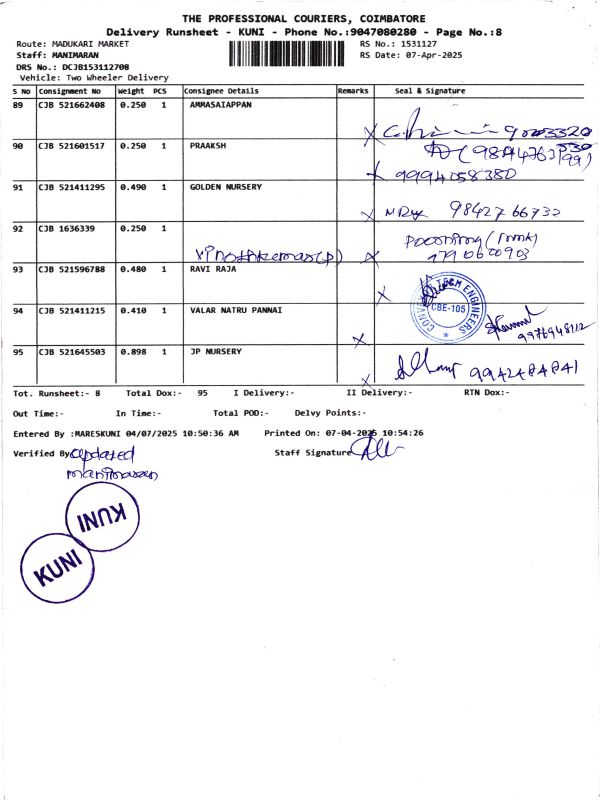 THE PROFESSIONAL COURIERS, COIMBATORE
Delivery Runsheet - KUNI - Phone No.:9047080280 - Page No.:8
Route: MADUKARI MARKET RS No.: 1531127
Staff: MANIMARAN RS Date: 07-Apr-2025
DRS No.: DCJB153112708
Vehicle: Two Wheeler Delivery
S No Consignment No Weight PCS Consignee Details Remarks Seal & Signature
89 CJB 521662408 0.250 1 AMMASAIAPPAN
90 CJB 521601517 0.250 1 PRAAKSH
9994058380
91 CJB 521411295 0.490 1 GOLDEN NURSERY
9842766732
92 CJB 1636339 0.250 1
93 CJB 521596788 0.480 1 RAVI RAJA
TECH ENGINEERS
CBE-105
94 CJB 521411215 0.410 1 VALAR NATRU PANNAI
9976948112
95 CJB 521645503 0.898 1 JP NURSERY
9942484841
Tot. Runsheet:- 8 Total Dox:- 95 I Delivery:- II Delivery:- RTN Dox:-
Out Time:- In Time:- Total POD:- Delvy Points:-
Entered By :MARESKUNI 04/07/2025 10:50:36 AM Printed On: 07-04-2025 10:54:26
Verified By updated Staff Signature
manimaran
KUNI
KUNI